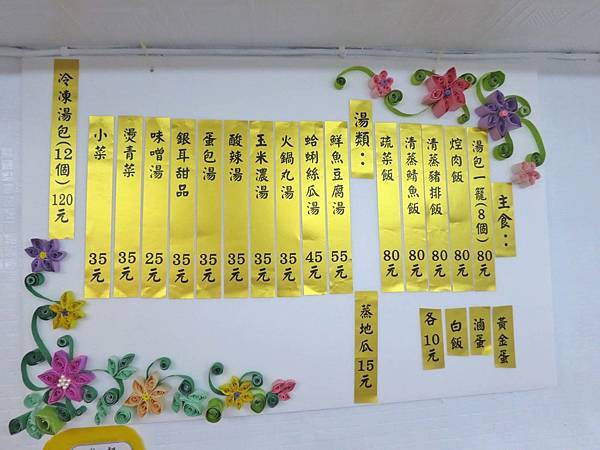 主食：
湯包一籠(8個)80元
焢肉飯80元
清蒸豬排飯80元
清蒸鯖魚飯80元
蔬菜飯80元
湯類：
鮮魚豆腐湯55元
蛤蜊絲瓜湯45元
火鍋丸湯35元
玉米濃湯35元
酸辣湯35元
蛋包湯35元
銀耳甜品35元
味噌湯25元
燙青菜35元
小菜35元
冷凍湯包(12個)120元
黃金蛋
滷蛋
白飯
各10元
蒸地瓜15元